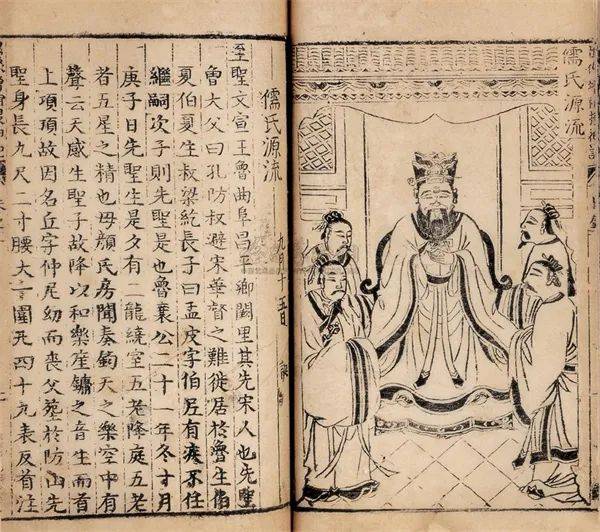 儒氏源流
儒氏源流
至聖文宣王魯曲阜昌平鄉闕里其先宋人也先聖
魯大父曰孔防叔避宋華督之難徙居於魯生伯
夏伯夏生叔梁紇長子曰孟皮字伯尼有疾不任
繼嗣次子則先聖是也魯襄公二十一年冬十月
庚子日先聖生是夕有二龍繞室五老降庭五老
者五星之精也母顔氏房聞奏鈞天之樂空中有
聲云天感生聖子故降以和樂笙鏞之音生而首
上項頂故因名丘字仲尼幼而喪父葬於防山先
聖身長九尺二寸腰大十圍凡四十九表反首洼